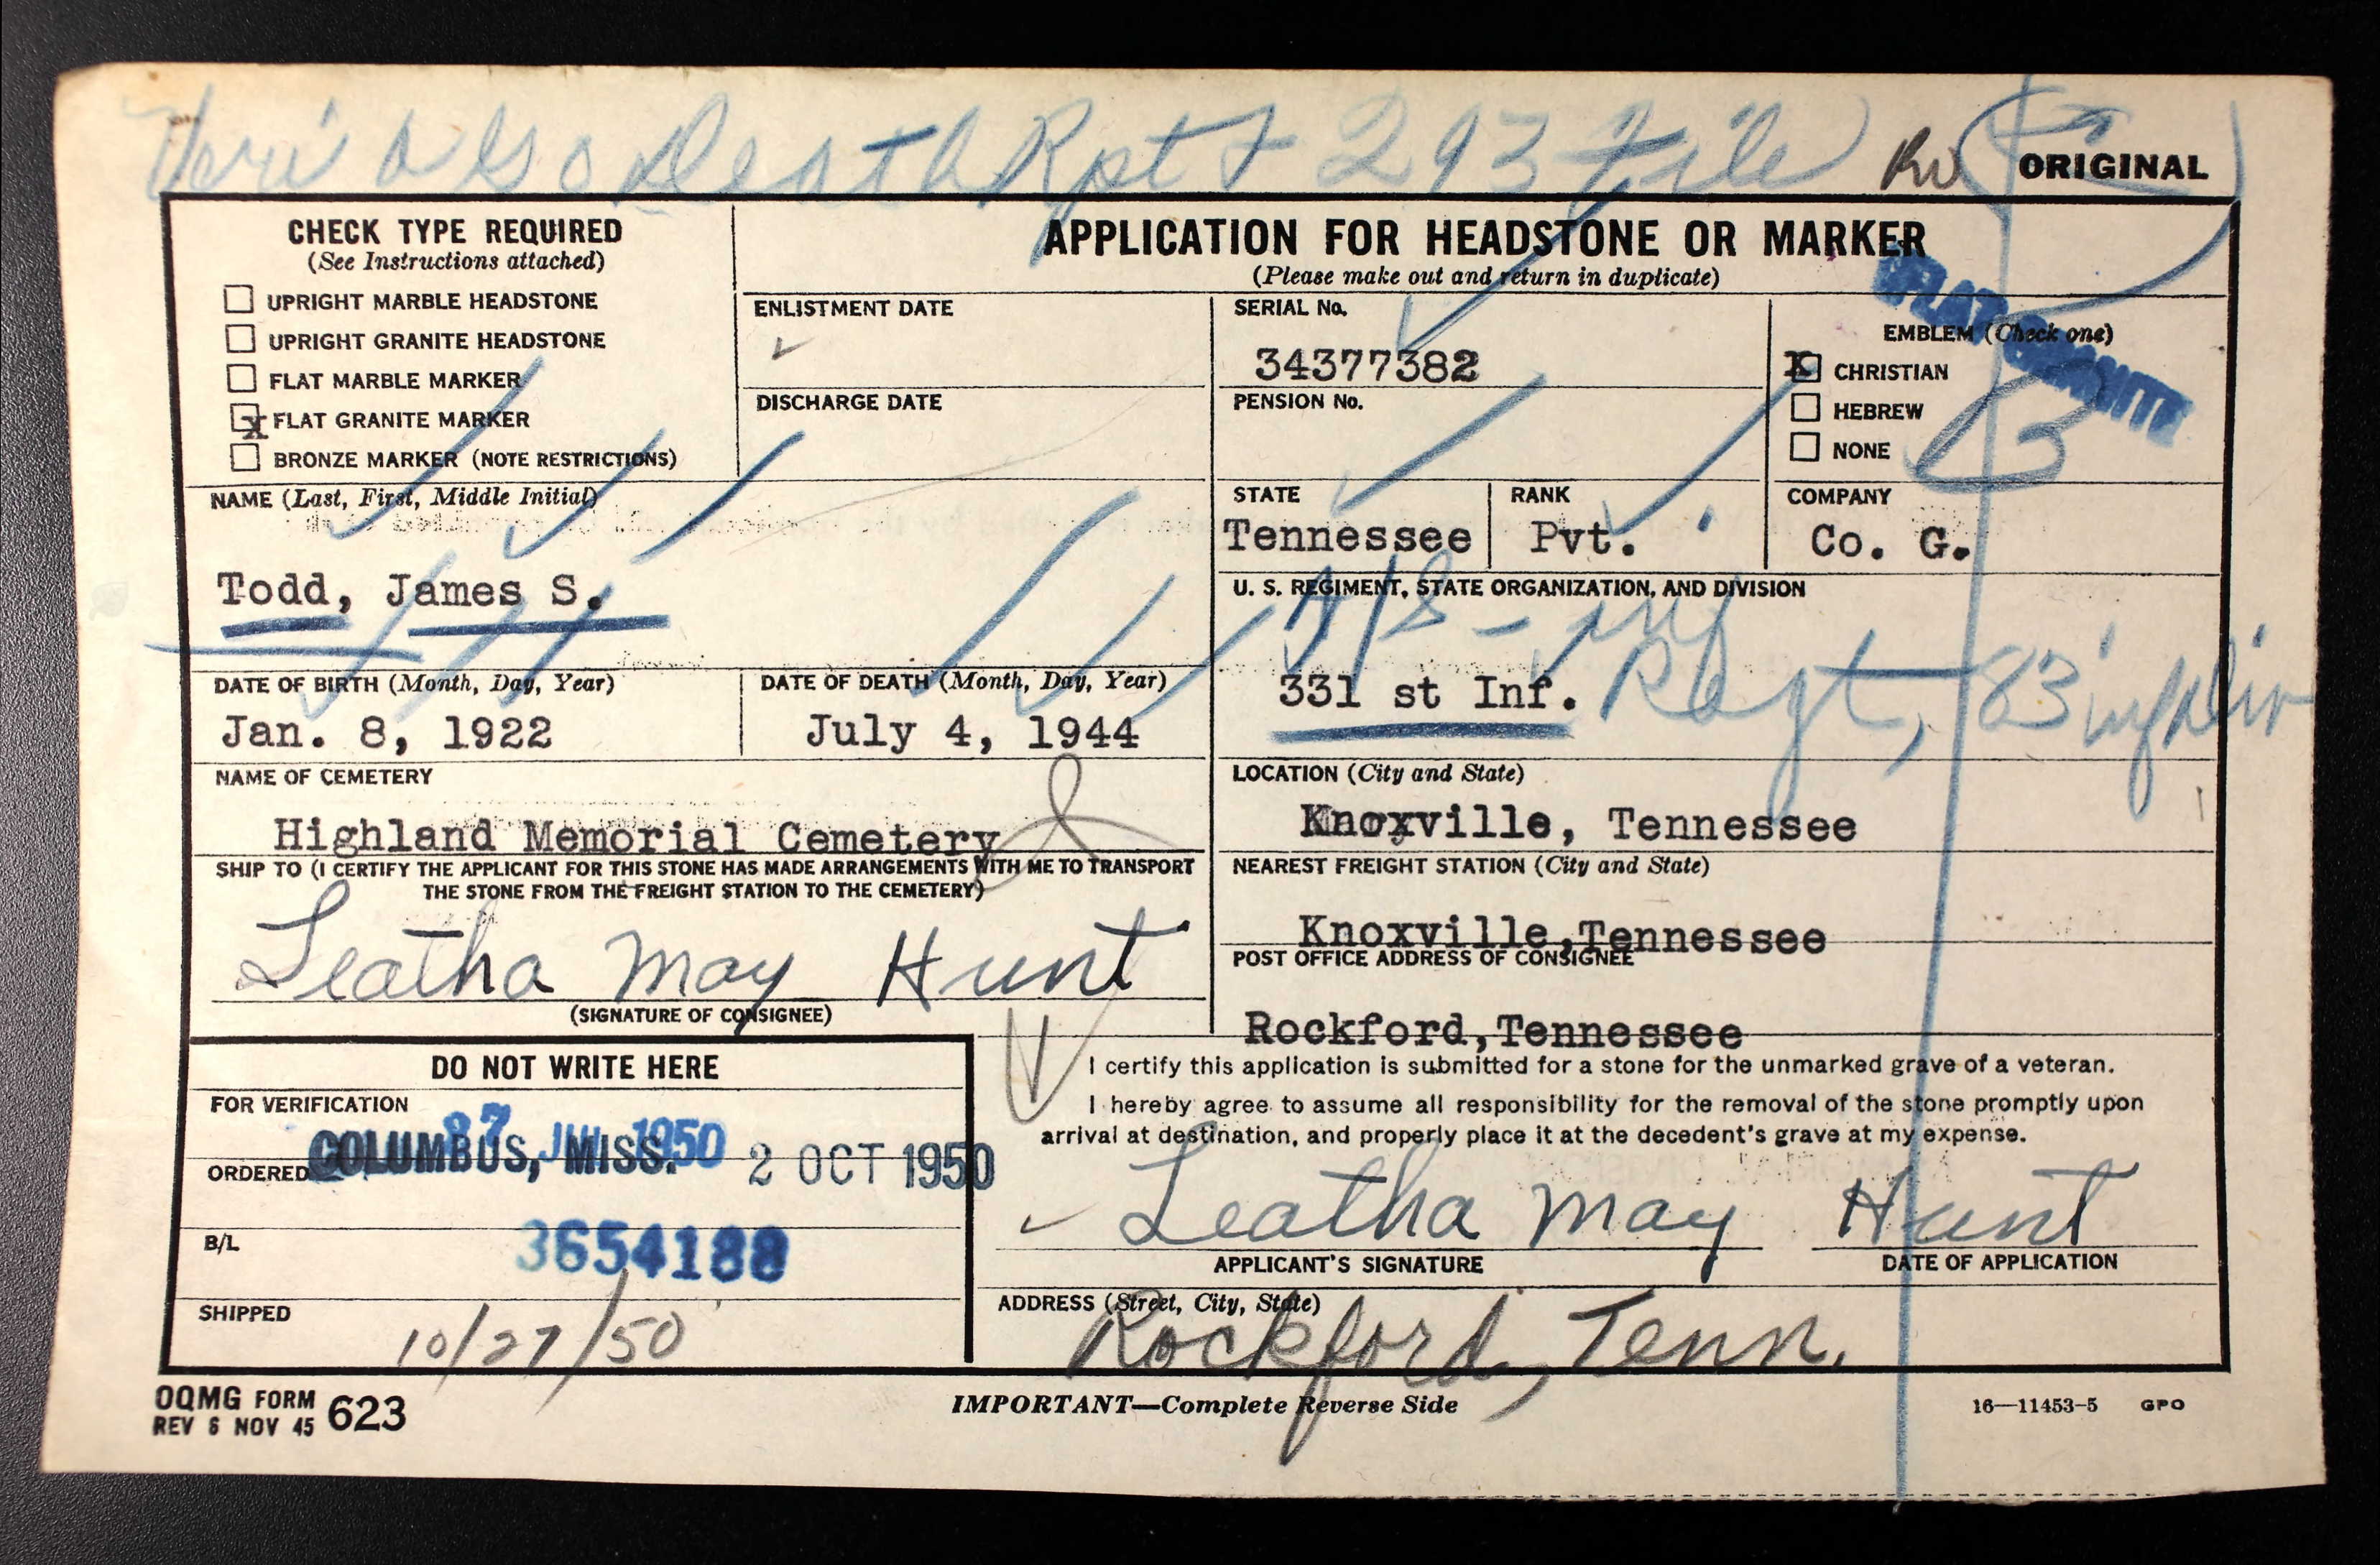 Veri also Death Rpt & 293 File RW
ORIGINAL
CHECK TYPE REQUIRED
(See Instructions attached)
UPRIGHT MARBLE HEADSTONE
UPRIGHT GRANITE HEADSTONE
FLAT MARBLE MARKER
X FLAT GRANITE MARKER
BRONZE MARKER (NOTE RESTRICTIONS)
APPLICATION FOR HEADSTONE OR MARKER
(Please make out and return in duplicate)
ENLISTMENT DATE
DISCHARGE DATE
SERIAL No.
34377382
PENSION No.
FLAT GRANITE
EMBLEM (Check one)
X CHRISTIAN
HEBREW
NONE
NAME (Last, First, Middle Initial)
Todd, James S.
STATE
Tennessee
RANK
Pvt.
COMPANY
Co. G.
U. S. REGIMENT, STATE ORGANIZATION, AND DIVISION
331 st Inf. Regt, 83 inf Div
DATE OF BIRTH (Month, Day, Year)
Jan. 8, 1922
DATE OF DEATH (Month, Day, Year)
July 4, 1944
NAME OF CEMETERY
Highland Memorial Cemetery
LOCATION (City and State)
Knoxville, Tennessee
SHIP TO (I CERTIFY THE APPLICANT FOR THIS STONE HAS MADE ARRANGEMENTS WITH ME TO TRANSPORT
THE STONE FROM THE FREIGHT STATION TO THE CEMETERY)
Leatha May Hunt
(SIGNATURE OF CONSIGNEE)
NEAREST FREIGHT STATION (City and State)
Knoxville,Tennessee
POST OFFICE ADDRESS OF CONSIGNEE
Rockford,Tennessee
DO NOT WRITE HERE
FOR VERIFICATION
27 JUL 1950
ORDERED COLUMBUS, MISS. 2 OCT 1950
B/L
3654188
SHIPPED
10/27/50
I certify this application is submitted for a stone for the unmarked grave of a veteran.
I hereby agree to assume all responsibility for the removal of the stone promptly upon
arrival at destination, and properly place it at the decedent's grave at my expense.
Leatha May Hunt
APPLICANT'S SIGNATURE
DATE OF APPLICATION
ADDRESS (Street, City, State)
Rockford, Tenn.
OQMG FORM 623
REV 6 NOV 45
IMPORTANT—Complete Reverse Side
16—11453-5 GPO